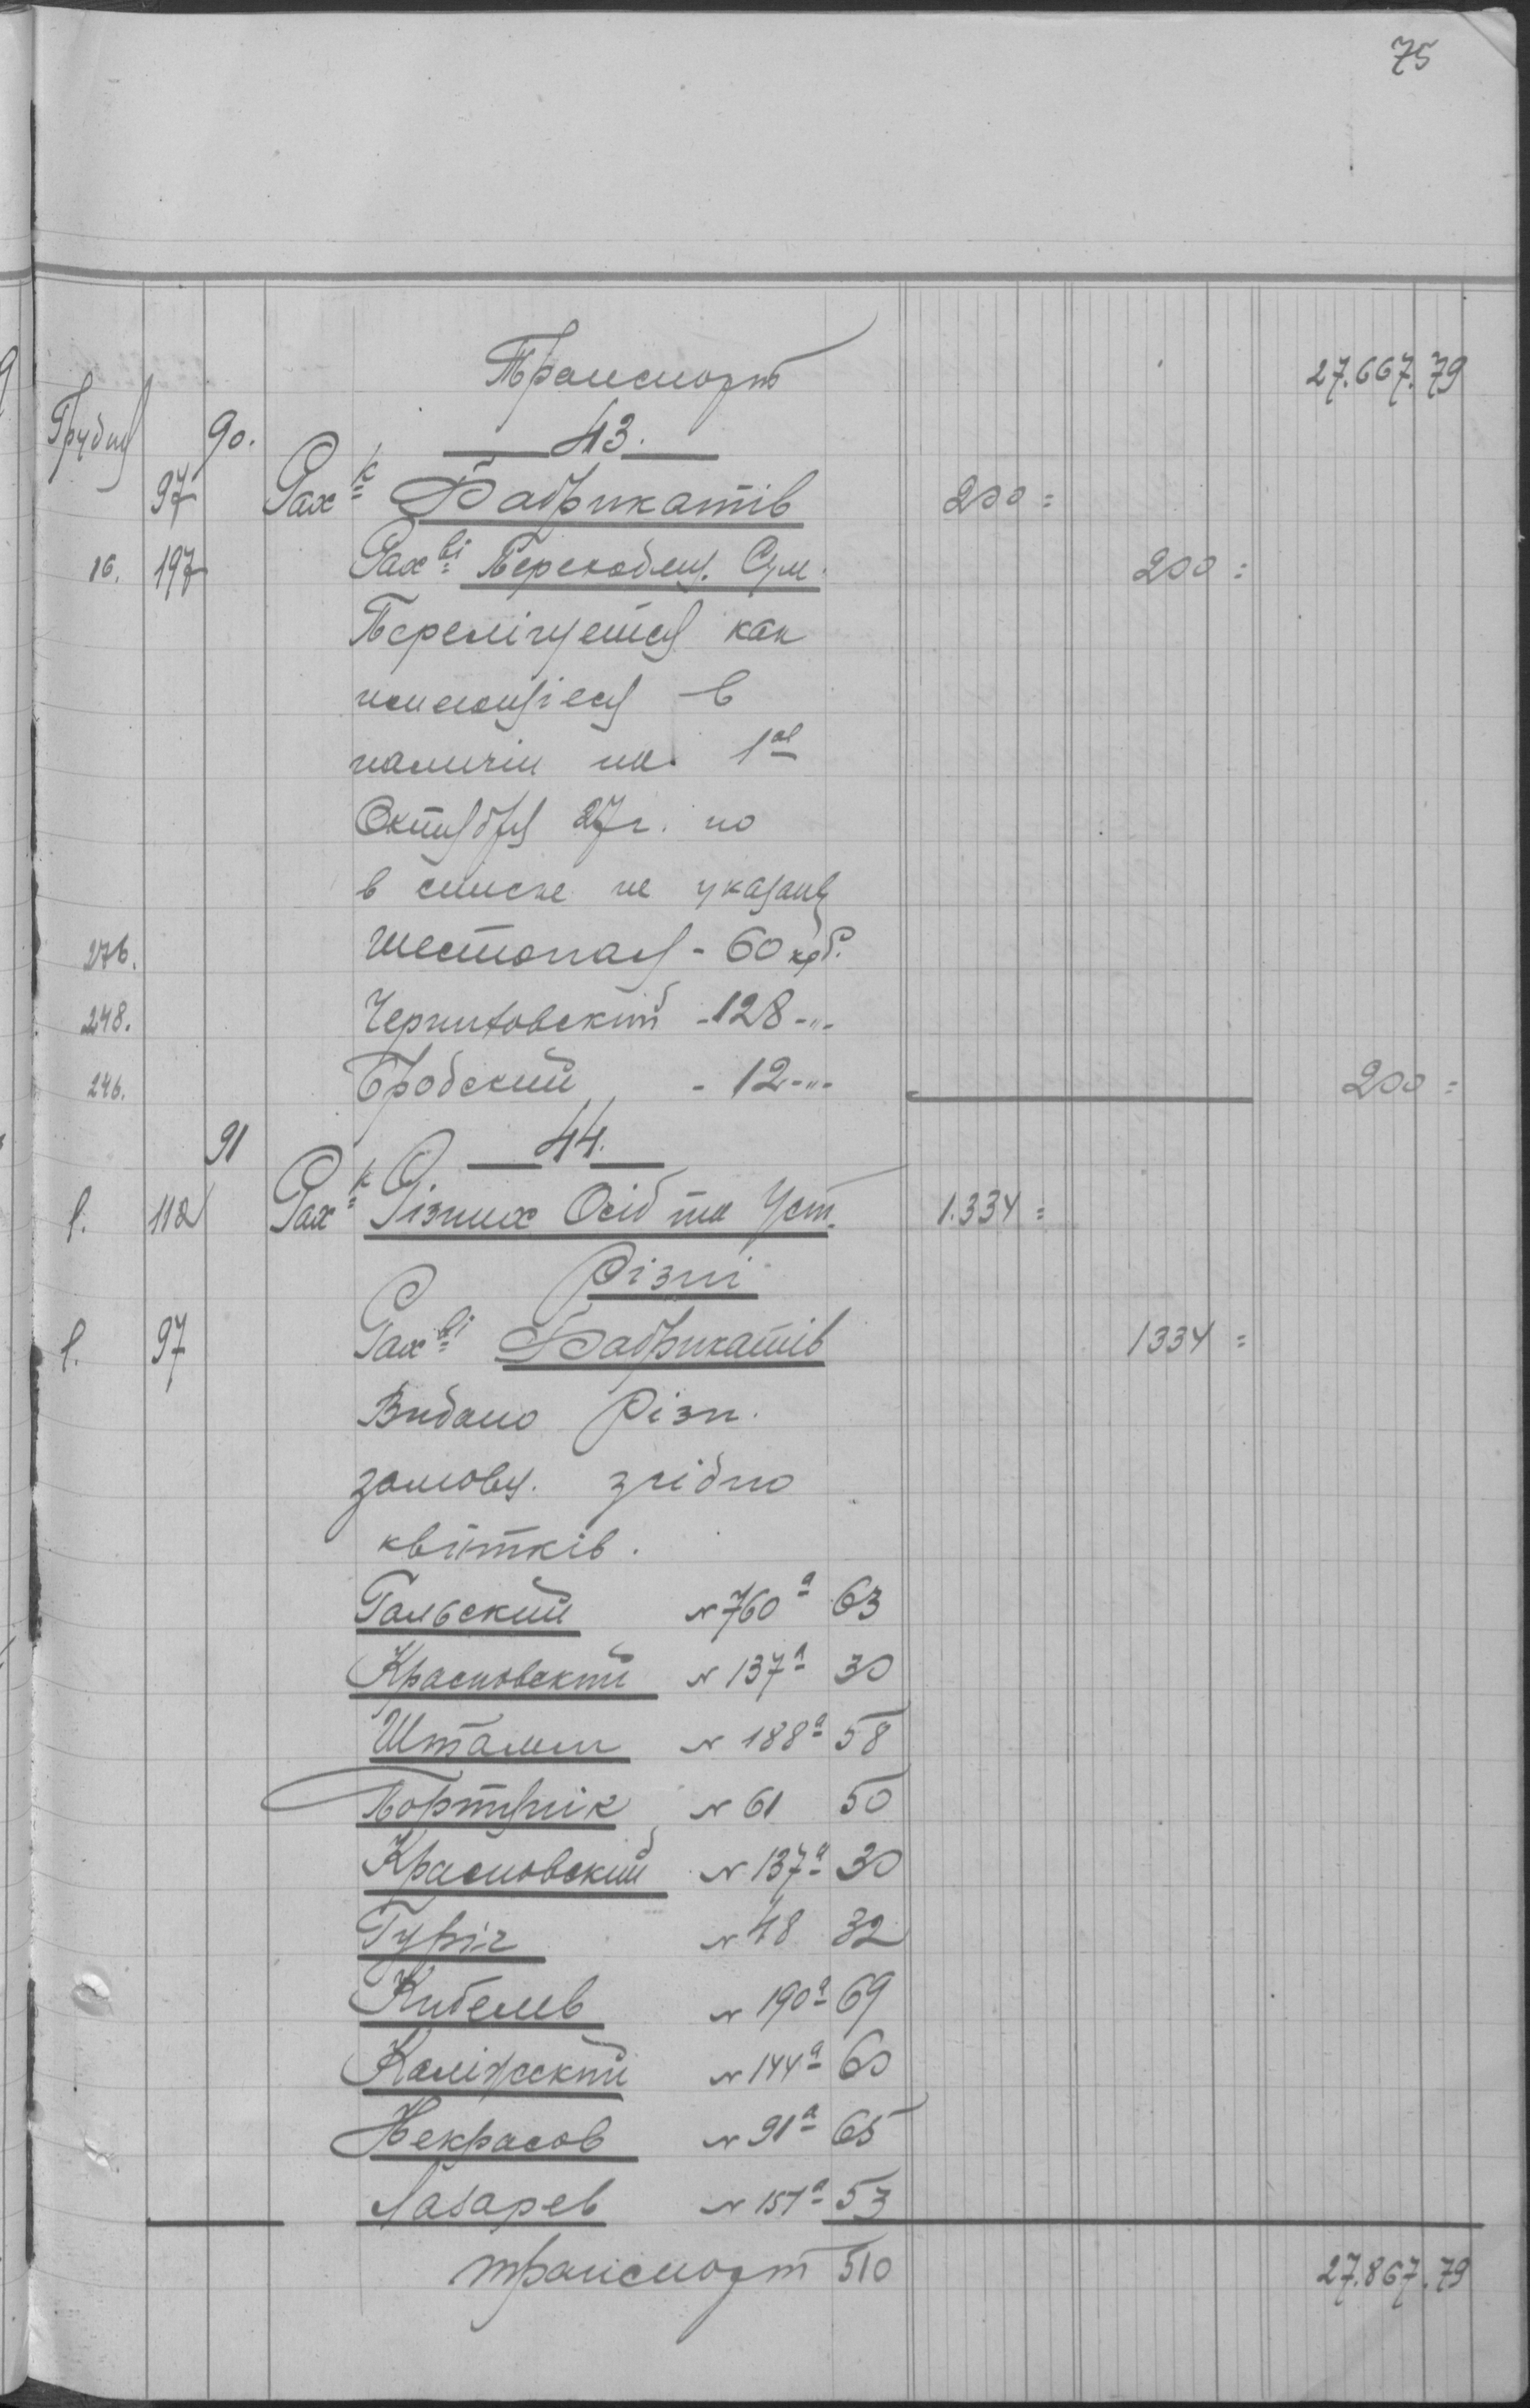 75
Транспорт 27.667.79
Грудня 90. 43.
97 Рах-к Фабрикатів 200=
16. 197 Рах-ві Переходящ. Сум. 200=
Перелічується как
имеющіеся в
наличіи на 1-ое
Октября 27 г. но
в списке не указаны
276. Шестопал - 60 крб.
248. Черниховский - 128 -"-
246. Бродский - 12 -"- 200=
91 44.
f. 112 Рах-к Різних Осіб та Уст. 1.334=
Різні
f. 97 Рах-ві Фабрикатів 1334=
Видано Різн.
замовн. згідно
квітків.
Гальский № 760а 63
Красновский № 137а 30
Штамм № 188а 58
Портянік № 61 50
Красновский № 137а 30
Гуріч № 48 32
Кибелев № 190а 69
Каліжский № 144а 60
Некрасов № 91а 65
Лазарев № 151а 53
транспорт 510 27.867.79